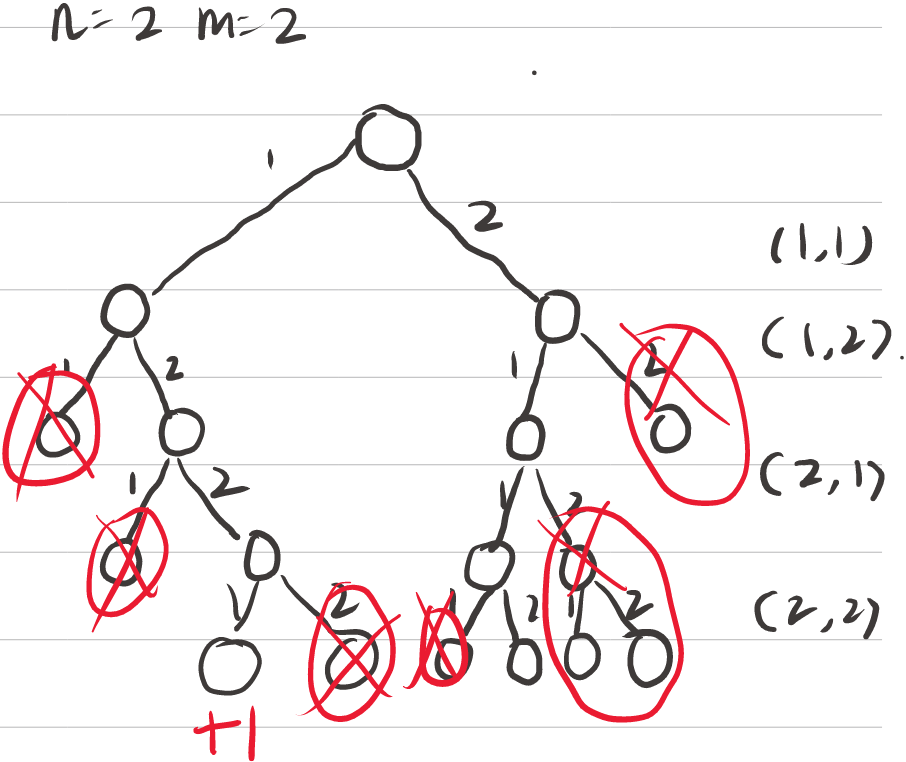 n=2 m=2
1 2
(1,1)
(1,2).
1 2 1 2
(2,1)
1 2 1 2
(2,2)
1 2 1 2 1 2
+1